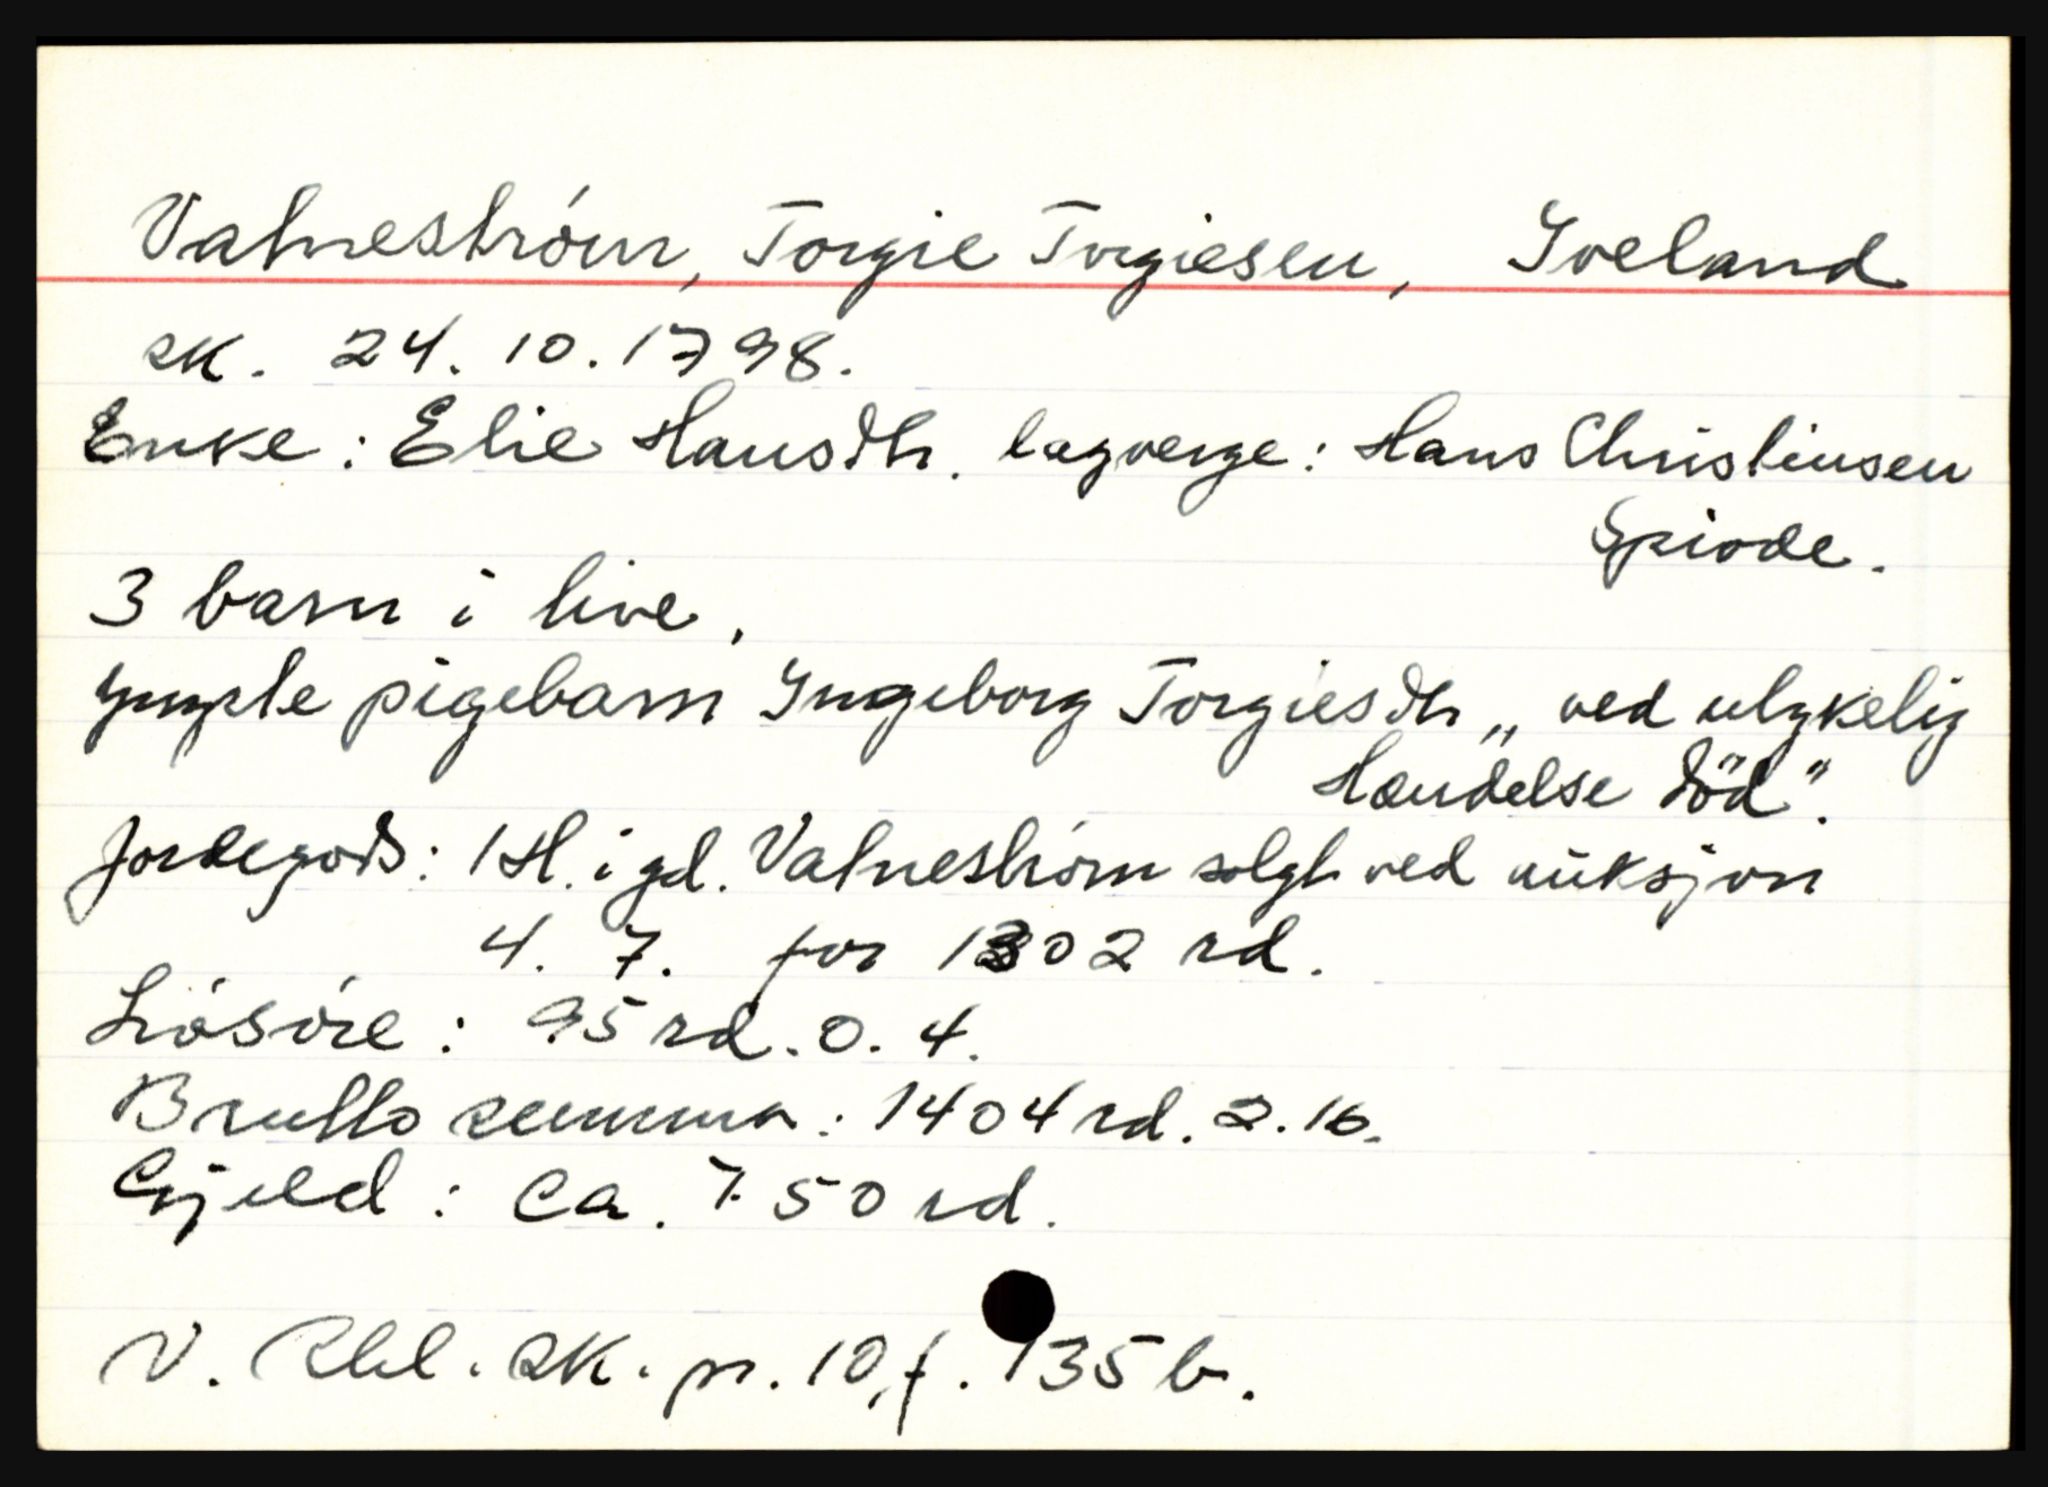 Vatneström, Torgie Torgiesen, Iveland
sk. 24. 10. 1798.
Enke: Elie Hansdtr. lagverge: Hans Christensen
3 barn i live.
yngste pigebarn Ingeborg Torgiesdtr „ved ulykelig
Hændelse död".
Jordegods: 1 H. i gd. Vatneström solgt ved auksjon
4. 7. for 1302 rd.
Lösöre: 95 rd. 0. 4.
Brutto summa: 1404 rd. 2. 16.
Gjeld: Ca. 750 rd.
V. Rbl. sk. pr. 10, f. 135 b.